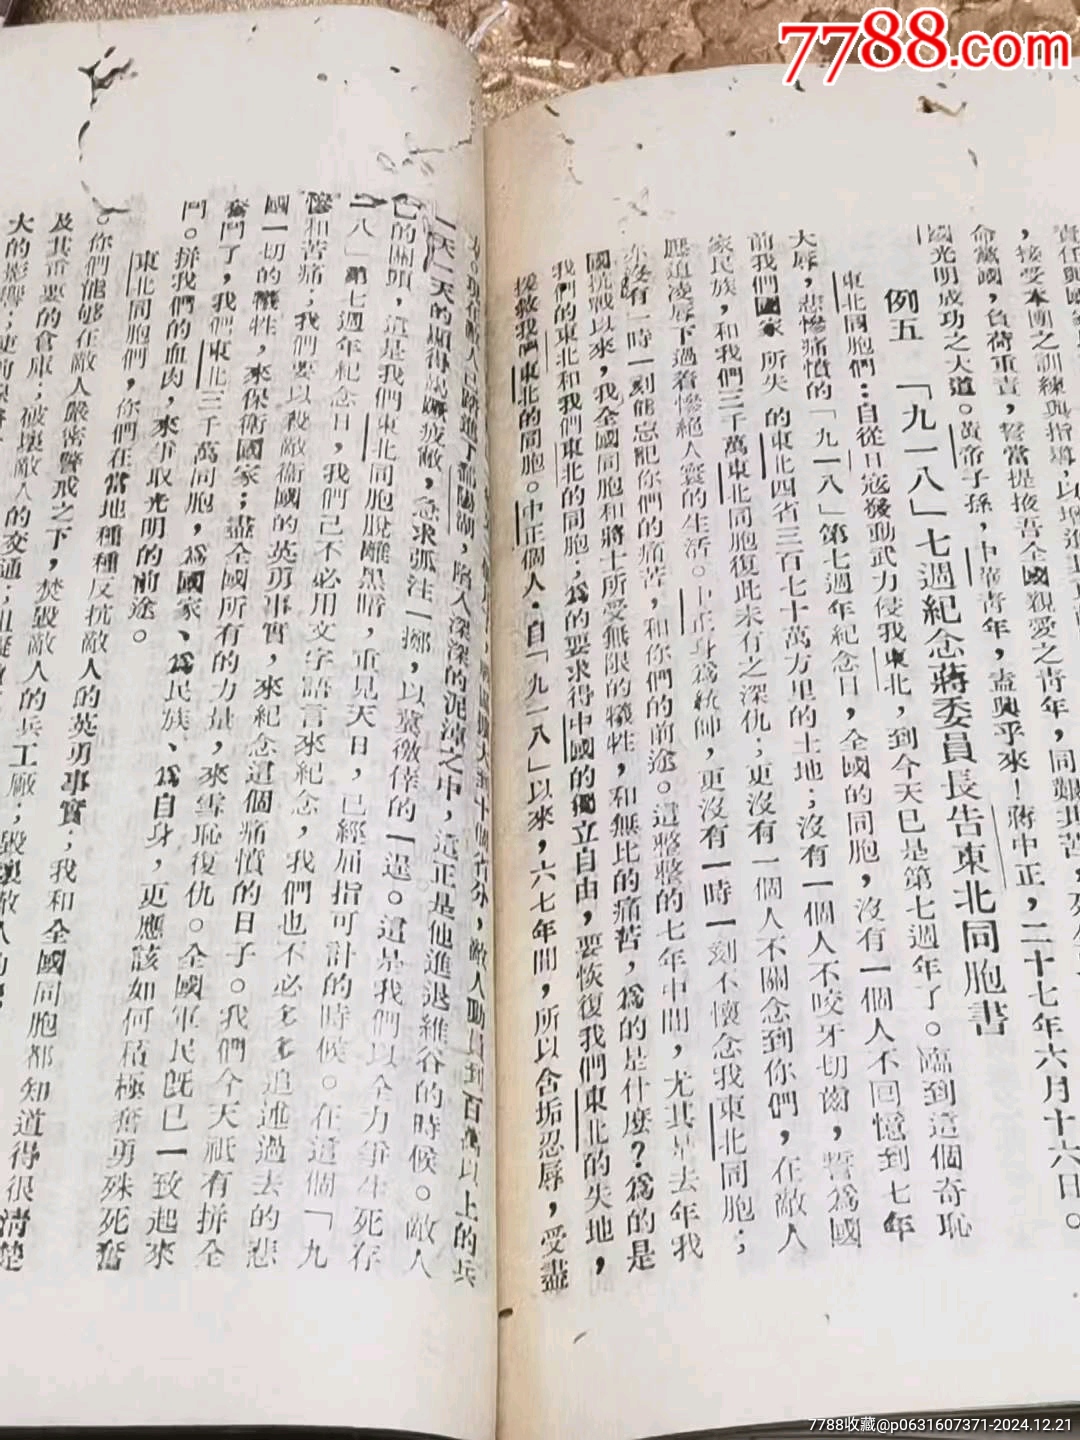 7788.com
責任與國
，接受本團之訓練與指導，以增進
命黨國，負荷重責，誓當提掖吾全國親愛之青年，同艱共苦
國光明成功之大道。黃帝子孫，中華青年，盍興乎來！蔣中正，二十七年六月十六日。
例五　「九一八」七週紀念蔣委員長告東北同胞書
東北同胞們：自從日寇發動武力侵我東北，到今天已是第七週年了。臨到這個奇恥
大辱，悲慘痛憤的「九一八」第七週年紀念日，全國的同胞，沒有一個人不回憶到七年
前我們國家所失的東北四省三百七十萬方里的土地；沒有一個人不咬牙切齒，誓為國
家民族，和我們三千萬東北同胞復此未有之深仇；更沒有一個人不關念到你們，在敵人
壓迫凌辱下過着慘絕人寰的生活。中正身為統帥，更沒有一時一刻不懷念我東北同胞；
沒有一時一刻能忘記你們的痛苦，和你們的前途。這整整的七年中間，尤其是去年我
國抗戰以來，我全國同胞和將士所受無限的犧牲，和無比的痛苦，為的是什麼？為的是
我們的東北和我們東北的同胞；為的要求得中國的獨立自由，要恢復我們東北的失地，
援救我們東北的同胞。中正個人，自「九一八」以來，六七年間，所以含垢忍辱，受盡
敵人動員到百萬以上的兵
一天一天的顯得竭蹶疲敝，急求孤注一擲，以冀徼倖的一逞。這是我們以全力爭生死存
已的關頭，這是我們東北同胞脫離黑暗，重見天日，已經屆指可計的時候。在這個「九
一八」第七週年紀念日，我們已不必用文字語言來紀念，我們也不必多多追述過去的悲
慘和苦痛；我們要以殺敵衞國的英勇事實，來紀念這個痛憤的日子。我們今天祇有拼全
國一切的犧牲，來保衛國家；盡全國所有的力量，來雪恥復仇。全國軍民既已一致起來
奮鬥了，我們東北三千萬同胞，為國家、為民族、為自身，更應該如何積極奮勇殊死奮
鬥。拼我們的血肉，來爭取光明的前途。
東北同胞們，你們在當地種種反抗敵人的英勇事實；我和全國同胞都知道得很清楚
。你們能够在敵人嚴密警戒之下，焚毀敵人的兵工廠；毀壞敵人的
及其重要的倉庫；破壞敵人的交通；阻礙
大的影響；
7788收藏@p0631607371-2024.12.21